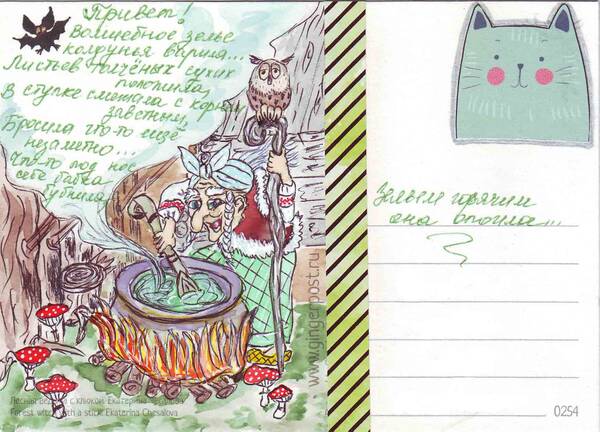 Привет!
Волшебное зелье
колдунья варила...
Листьев толчёных сухих
положила,
В ступке смешала с корнем
заветным,
Бросила что-то ещё
незаметно...
Что-то под нос
себе бабка
бубнила,
Зельем горячим
она поила...
www.gingerpost.ru
Лесная ведьма с клюкой. Екатерина
Forest witch with a stick. Ekaterina Chesalova
0254